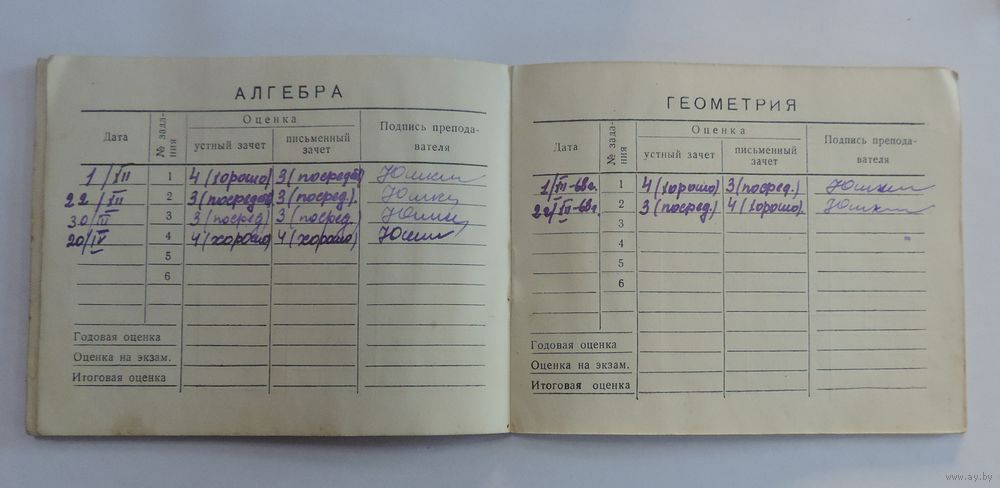 АЛГЕБРА
Дата № зада-ния Оценка Подпись препода-вателя
устный зачет письменный зачет
1/XII 1 4 (хорошо) 3 (посред.)
22/XII 2 3 (посред.) 3 (посред.)
30/III 3 3 (посред.) 3 (посред.)
20/IV 4 4 (хорошо) 4 (хорошо)
5
6
Годовая оценка
Оценка на экзам.
Итоговая оценка
ГЕОМЕТРИЯ
Дата № зада-ния Оценка Подпись препода-вателя
устный зачет письменный зачет
1/XII-68г. 1 4 (хорошо) 3 (посред.)
22/XII-68г. 2 3 (посред.) 4 (хорошо)
3
4
5
6
Годовая оценка
Оценка на экзам.
Итоговая оценка
www.ay.by